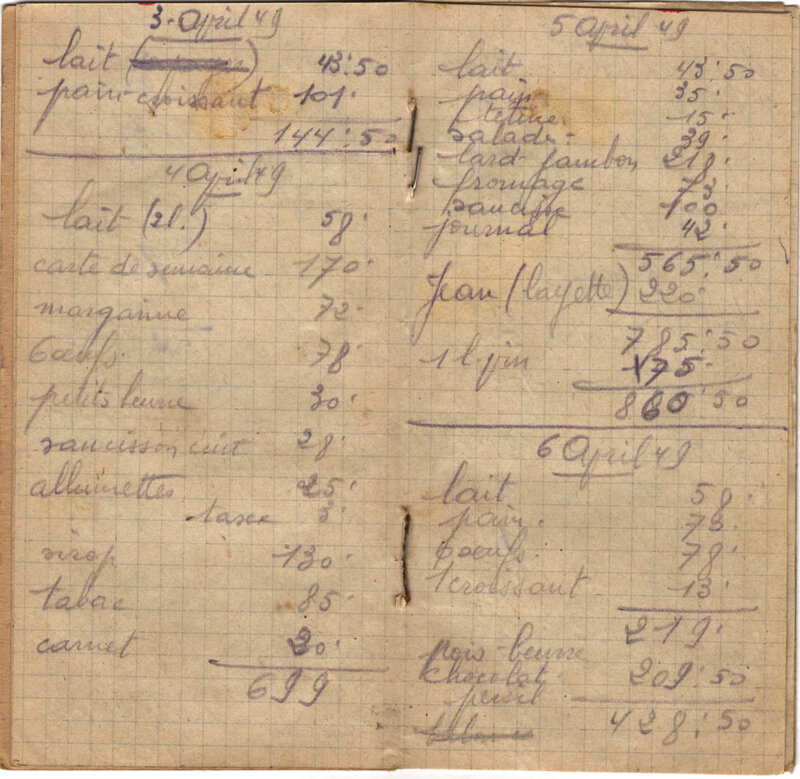 3 April 49
lait 43:50
pain croissant 101.
144:50
4 April 49
lait (2l.) 58.
carte de semaine 170.
margarine 72.
6 œufs. 78.
petits beurre 30.
saucisson cuit 28.
allumettes 25.
taxe 3.
sirop 130.
tabac 85.
carnet 20.
699
5 April 49
lait. 43:50
pain 35.
15.
salade. 39.
lard jambon 218.
fromage 73.
saucisse 100
journal 42.
565:50
Jean (layette) 220.
785:50
1 l. 75.
860:50
6 April 49
lait 58.
pain. 73.
œufs. 78.
1 croissant. 13.
219.
pois-beurre
chocolat. 209:50
persil
428:50